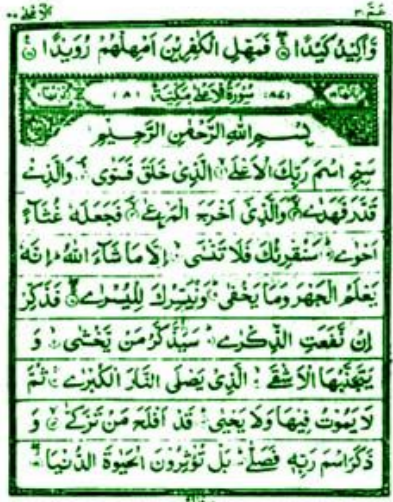 وَّاَكِيْدُ كَيْدًا ۚ فَمَهِّلِ الْكٰفِرِيْنَ اَمْهِلْهُمْ رُوَيْدًا
سُوْرَةُ الْاَعْلٰى مَكِّيَّةٌ
بِسْمِ اللهِ الرَّحْمٰنِ الرَّحِيْمِ
سَبِّحِ اسْمَ رَبِّكَ الْاَعْلَى الَّذِىْ خَلَقَ فَسَوّٰى وَالَّذِىْ
قَدَّرَ فَهَدٰى وَالَّذِىْ اَخْرَجَ الْمَرْعٰى فَجَعَلَهٗ غُثَآءً
اَحْوٰى سَنُقْرِئُكَ فَلَا تَنْسٰى اِلَّا مَا شَآءَ اللهُ اِنَّهٗ
يَعْلَمُ الْجَهْرَ وَمَا يَخْفٰى وَنُيَسِّرُكَ لِلْيُسْرٰى فَذَكِّرْ
اِنْ نَّفَعَتِ الذِّكْرٰى سَيَذَّكَّرُ مَنْ يَّخْشٰى وَ
يَتَجَنَّبُهَا الْاَشْقَى الَّذِىْ يَصْلَى النَّارَ الْكُبْرٰى ثُمَّ
لَا يَمُوْتُ فِيْهَا وَلَا يَحْيٰى قَدْ اَفْلَحَ مَنْ تَزَكّٰى وَ
ذَكَرَ اسْمَ رَبِّهٖ فَصَلّٰى بَلْ تُؤْثِرُوْنَ الْحَيٰوةَ الدُّنْيَا